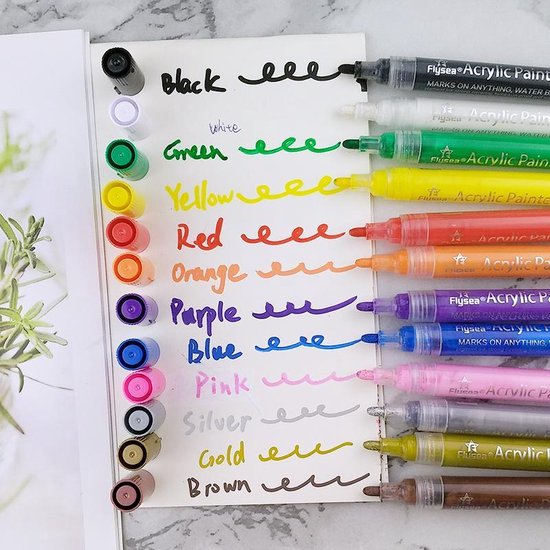 Black
Flysea® Acrylic Painte
MARKS ON ANYTHING, WATER B
White
Green
Flysea® Acrylic Painte
Yellow
Acrylic Painte
Red
Flysea® Acrylic
Orange
Flysea® Acrylic
Purple
Flysea® Acrylic
Blue
Flysea® Acrylic
MARKS ON ANYTHING
Pink
Acrylic Pa
Silver
Gold
Flysea® Acrylic P
Brown